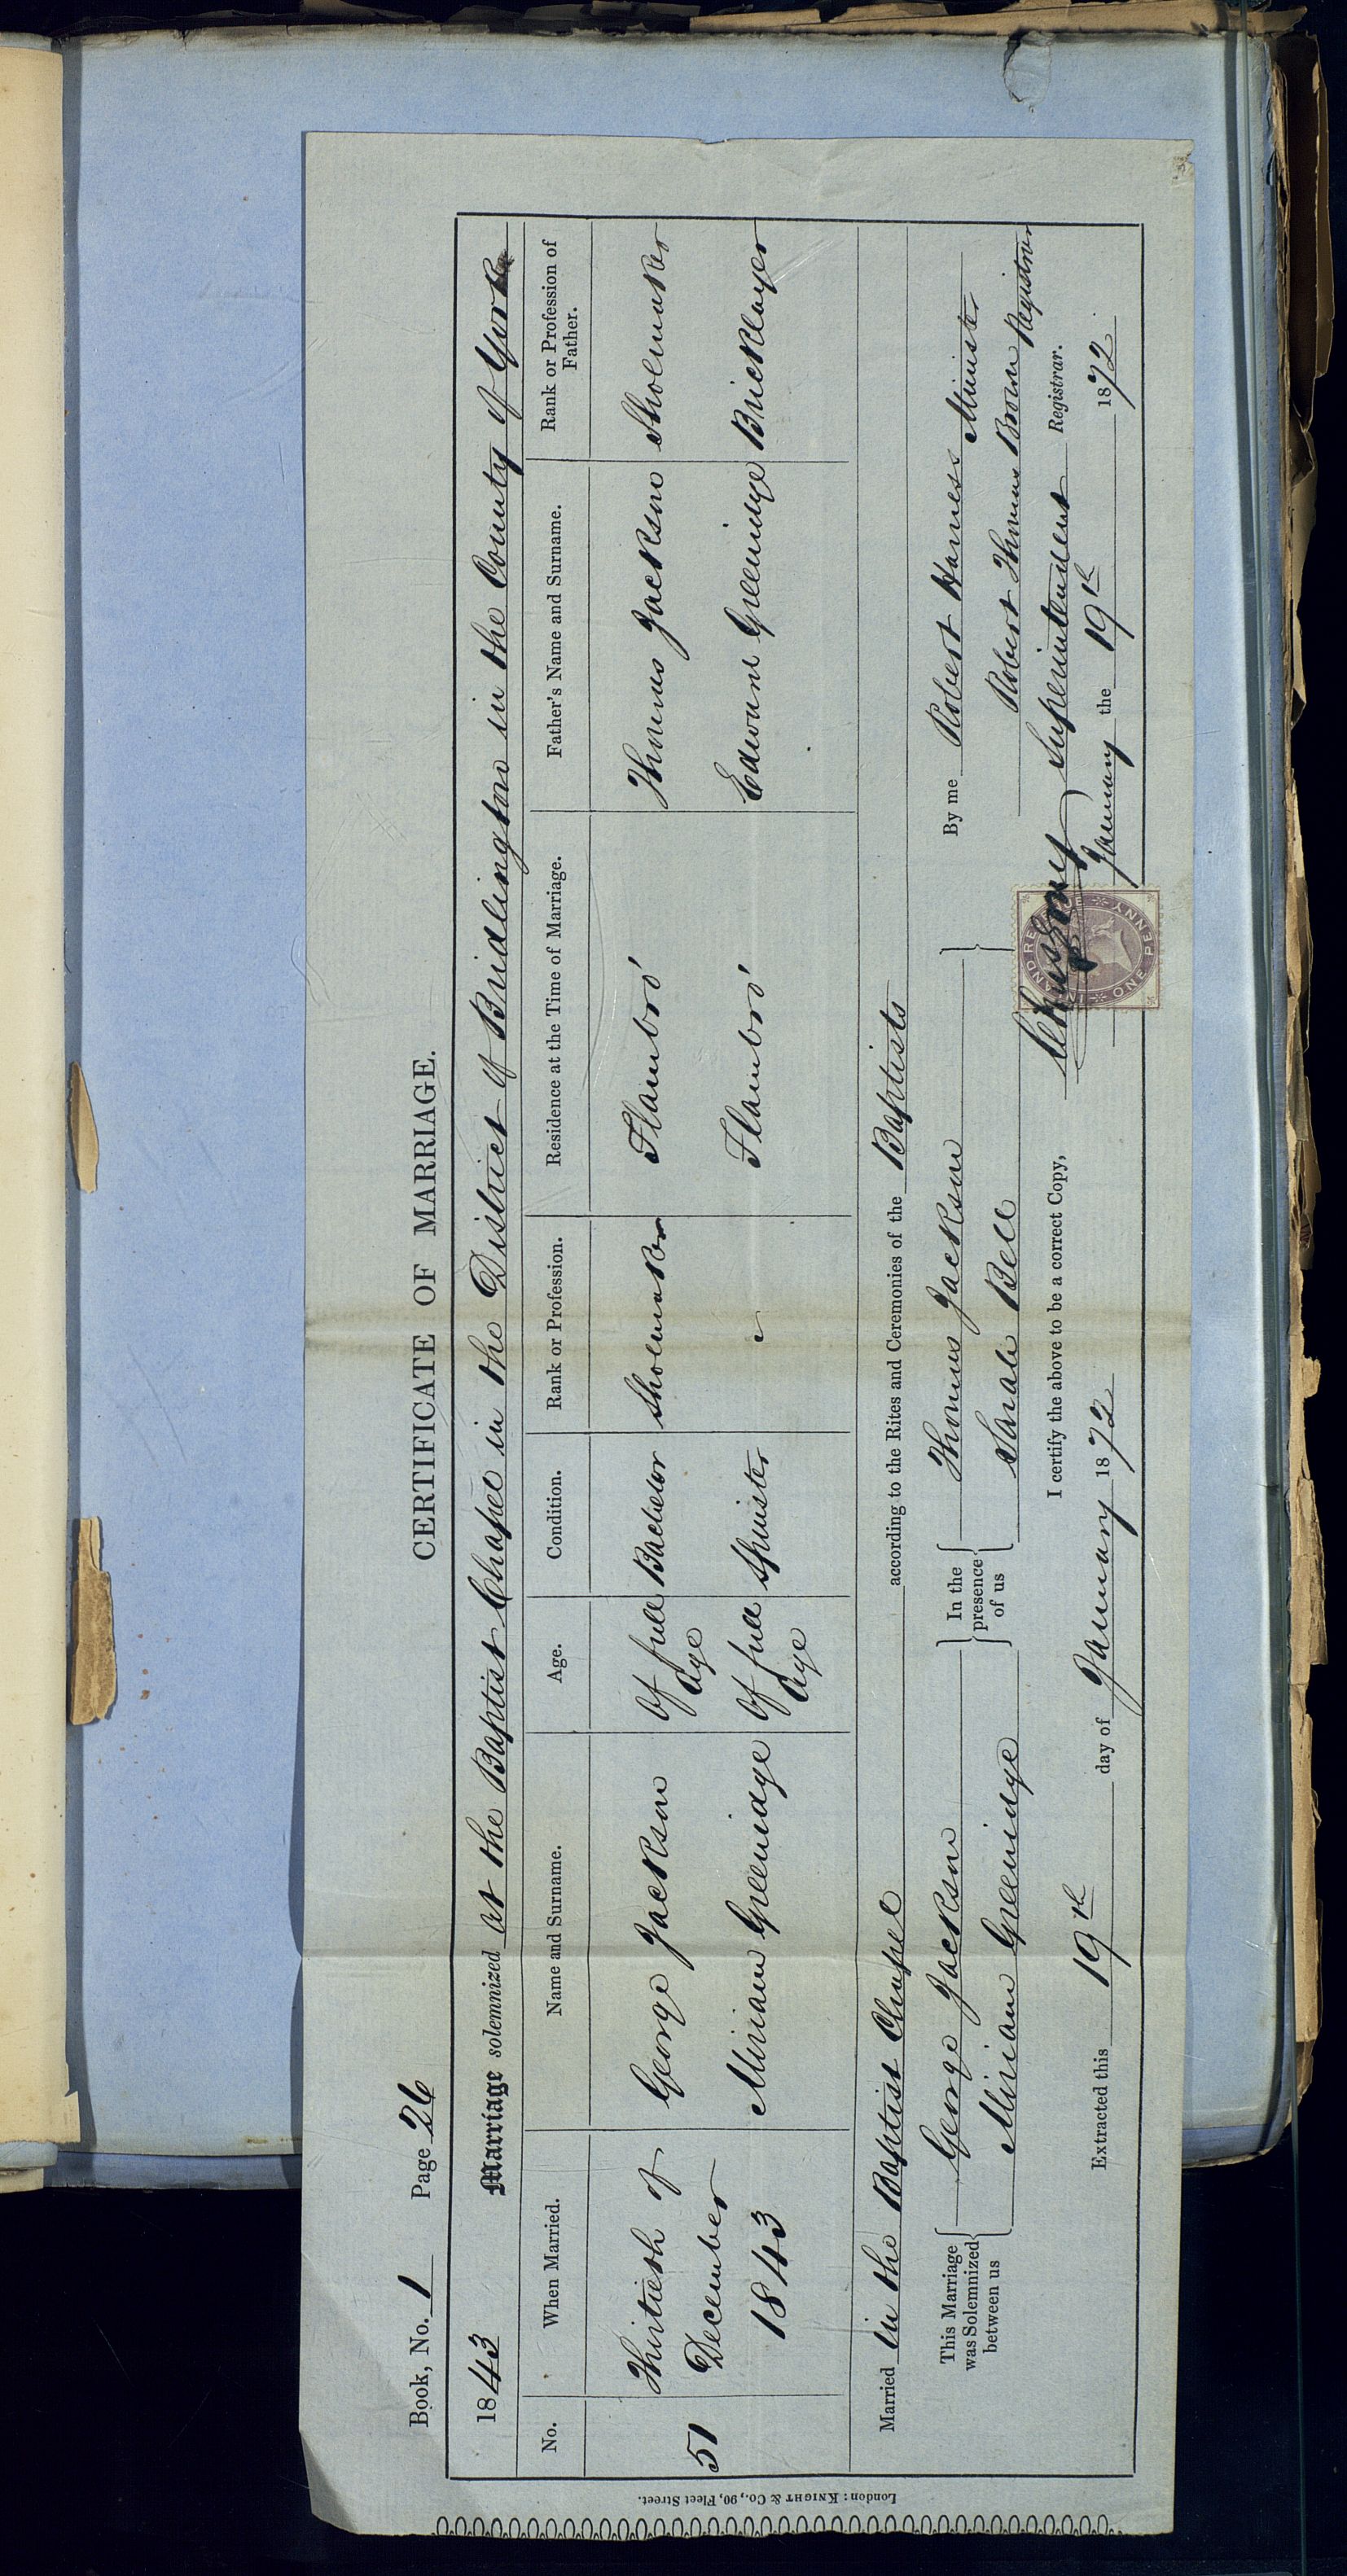 CERTIFICATE OF MARRIAGE.
Book, No. 1 Page 26
1843 Marriage solemnized at the Baptist Chapel in the District of Bridlington in the County of York
No. When Married. Name and Surname. Age. Condition. Rank or Profession. Residence at the Time of Marriage. Father's Name and Surname. Rank or Profession of Father.
51 Thirtieth of December 1843 George Jackson Of full Age Bachelor Shoemaker Flambro' Thomas Jackson Shoemaker
Miriam Greenidge Of full Age Spinster Flambro' Edward Greenidge Bricklayer
Married in the Baptist Chapel according to the Rites and Ceremonies of the Baptists
This Marriage was Solemnized between us George Jackson In the presence of us Thomas Jackson By me Robert Harness Minister
Miriam Greenidge Sarah Bell Robert Thomas Brown Registrar
I certify the above to be a correct Copy, Superintendent Registrar.
Extracted this 19th day of January 1872 January the 19th 1872
INLAND REVENUE
ONE PENNY
London: KNIGHT & Co., 90, Fleet Street.